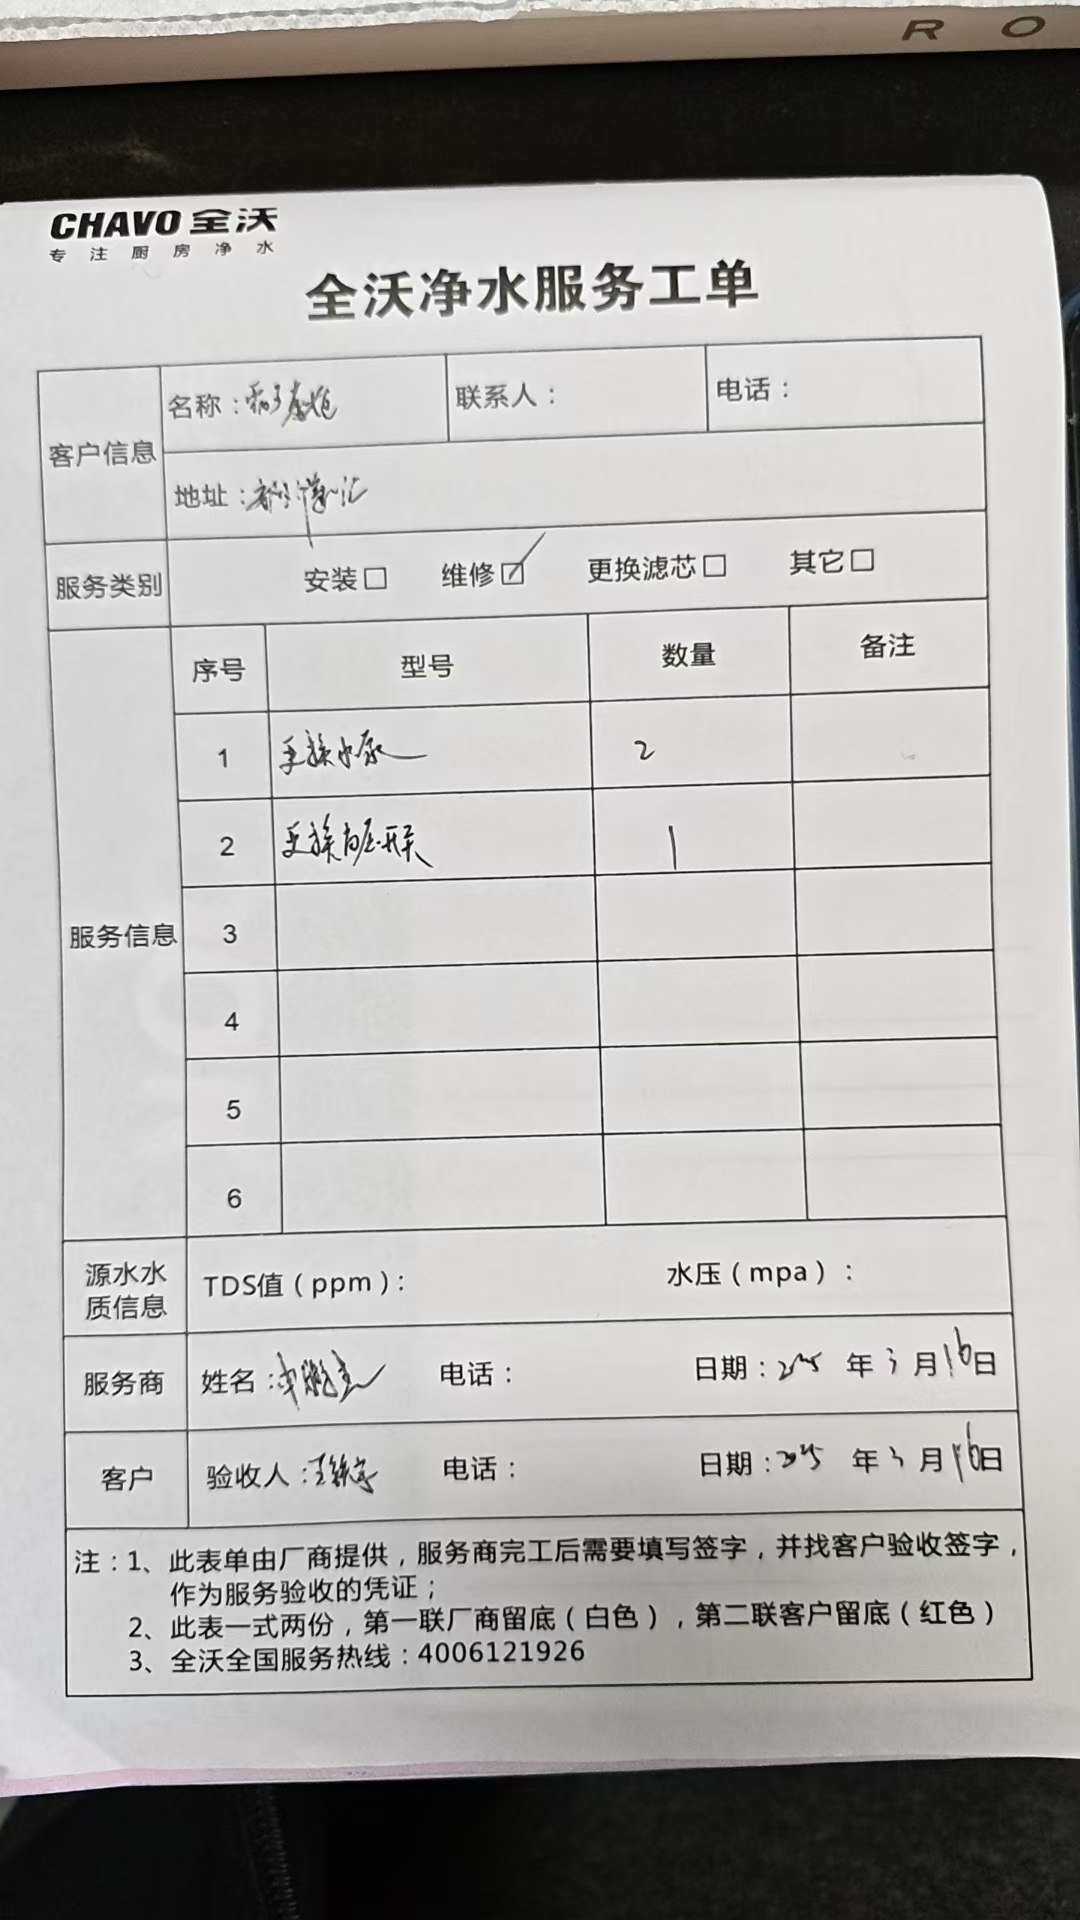 R O
CHAVO 全沃
专注厨房净水
全沃净水服务工单
客户信息
名称：
联系人：
电话：
地址：
服务类别
安装□ 维修☑ 更换滤芯□ 其它□
服务信息
序号 型号 数量 备注
1 更换水泵 2
2 更换高压开关 1
3
4
5
6
源水水质信息
TDS值（ppm）： 水压（mpa）：
服务商
姓名： 电话： 日期：2025 年 3 月 16 日
客户
验收人： 电话： 日期：2025 年 3 月 16 日
注：1、此表单由厂商提供，服务商完工后需要填写签字，并找客户验收签字，
作为服务验收的凭证；
2、此表一式两份，第一联厂商留底（白色），第二联客户留底（红色）
3、全沃全国服务热线：4006121926